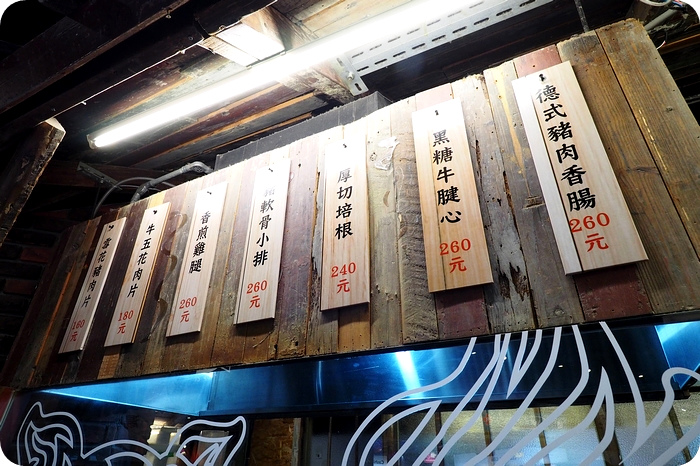 德式豬肉香腸
260
元
黑糖牛腱心
260
元
厚切培根
240
元
軟骨小排
260
元
香煎雞腿
260
元
牛五花肉片
180
元
雪花豬肉片
180
元